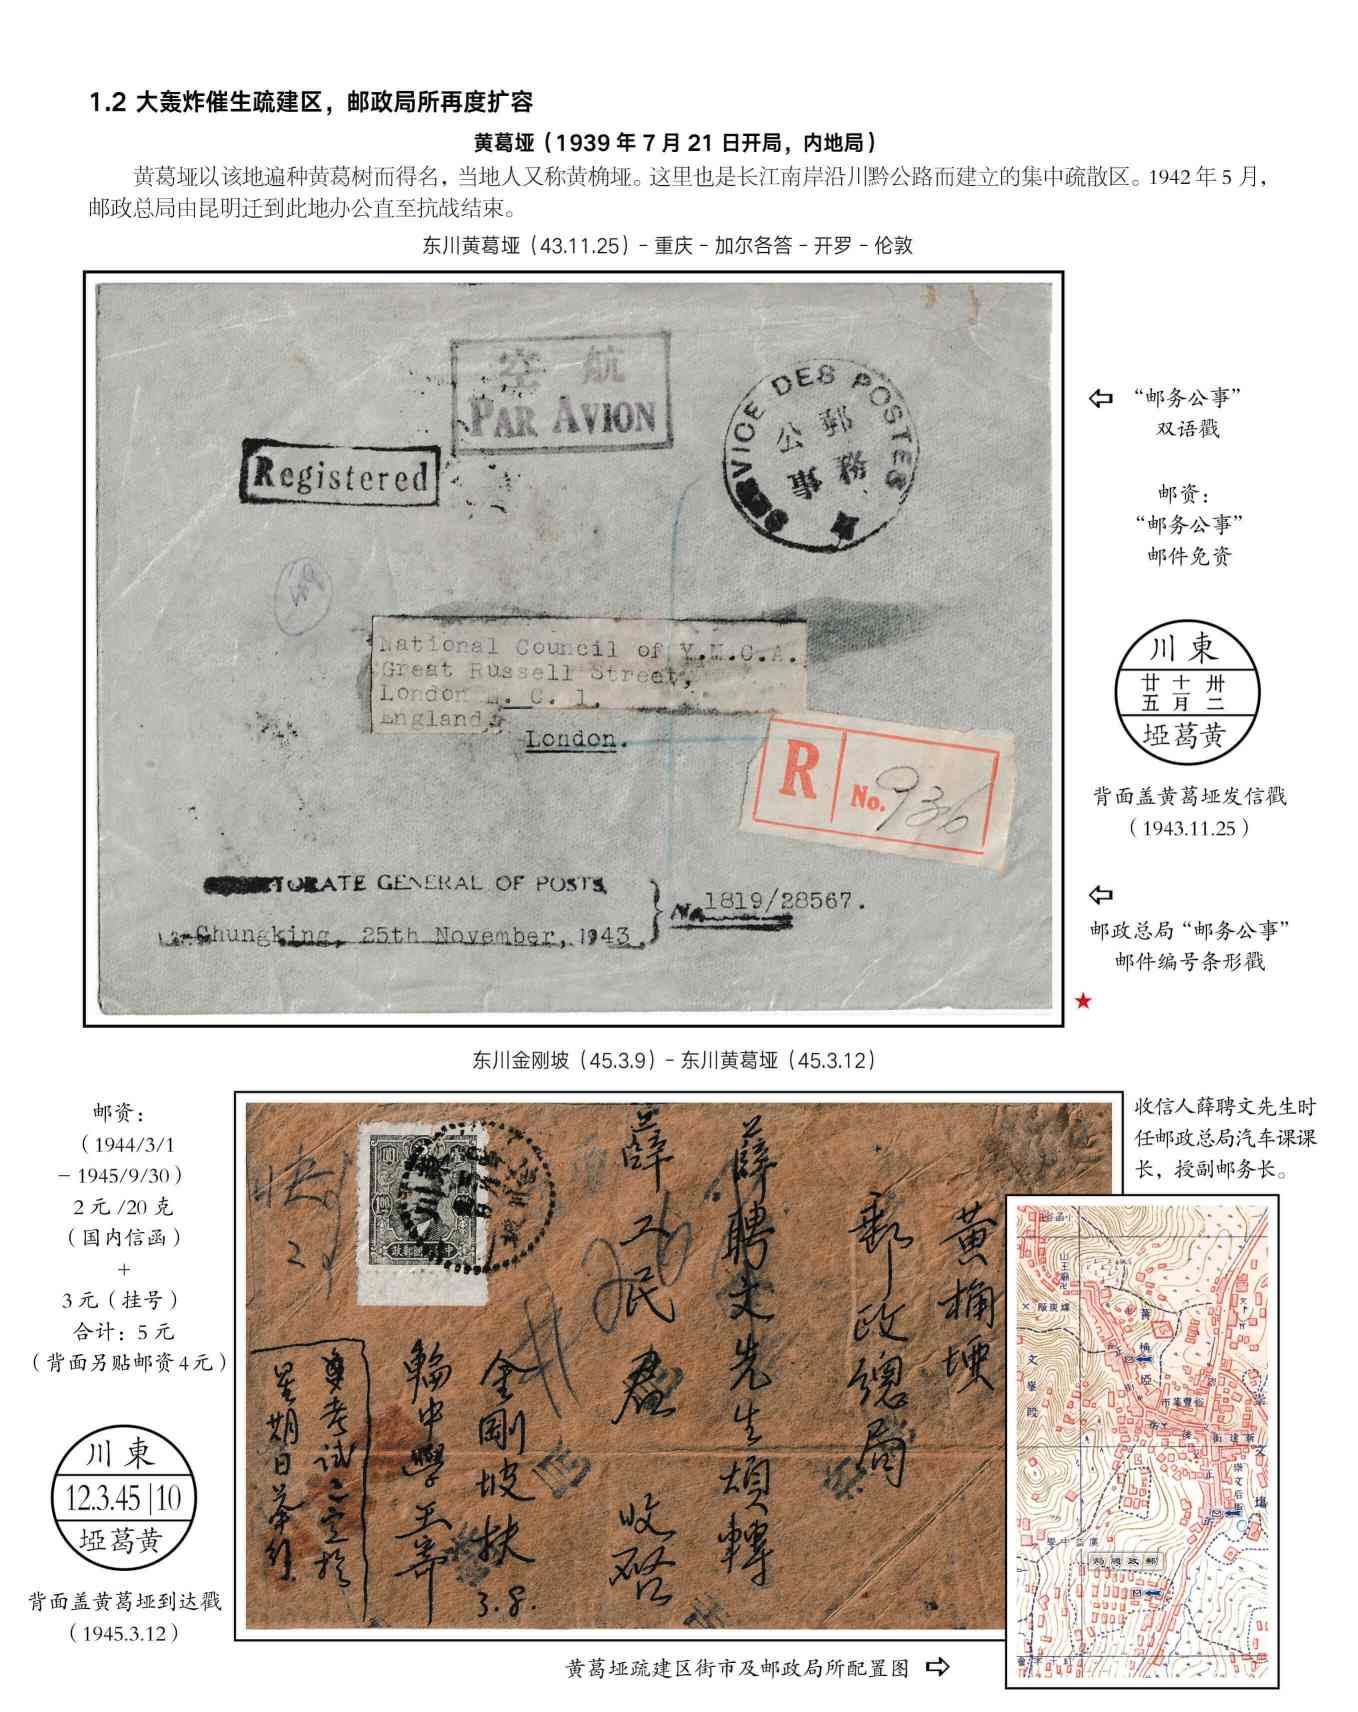 1.2 大轰炸催生疏建区，邮政局所再度扩容
黄葛垭（1939 年 7 月 21 日开局，内地局）
黄葛垭以该地遍种黄葛树而得名，当地人又称黄桷垭。这里也是长江南岸沿川黔公路而建立的集中疏散区。1942 年 5 月，
邮政总局由昆明迁到此地办公直至抗战结束。
东川黄葛垭（43.11.25）- 重庆 - 加尔各答 - 开罗 - 伦敦
空航
PAR AVION
Registered
SERVICE DES POSTES
公郵
務
National Council of Y.M.C.A.
Great Russell Street,
London W. C. 1.
England.
London.
R No. 936
TORATE GENERAL OF POSTS
Chungking, 25th November, 1943.
No. 1819/28567.
“邮务公事”
双语戳
邮资：
“邮务公事”
邮件免资
川東
廿十卅
五月二
垭葛黄
背面盖黄葛垭发信戳
（1943.11.25）
邮政总局“邮务公事”
邮件编号条形戳
★
东川金刚坡（45.3.9）- 东川黄葛垭（45.3.12）
邮资：
（1944/3/1
- 1945/9/30）
2 元 /20 克
（国内信函）
+
3 元（挂号）
合计：5 元
（背面另贴邮资 4 元）
川東
12.3.45|10
垭葛黄
背面盖黄葛垭到达戳
（1945.3.12）
黄桷垭
郵政總局
薛聘文先生煩轉
薛工民君 收啓
金剛坡扶
輪中學王寄
3.8.
收信人薛聘文先生时
任邮政总局汽车课课
长，授副邮务长。
山王廟
文峯段
黃桷垭
崇文
新建街
崇文后街
局總政郵
黄葛垭疏建区街市及邮政局所配置图